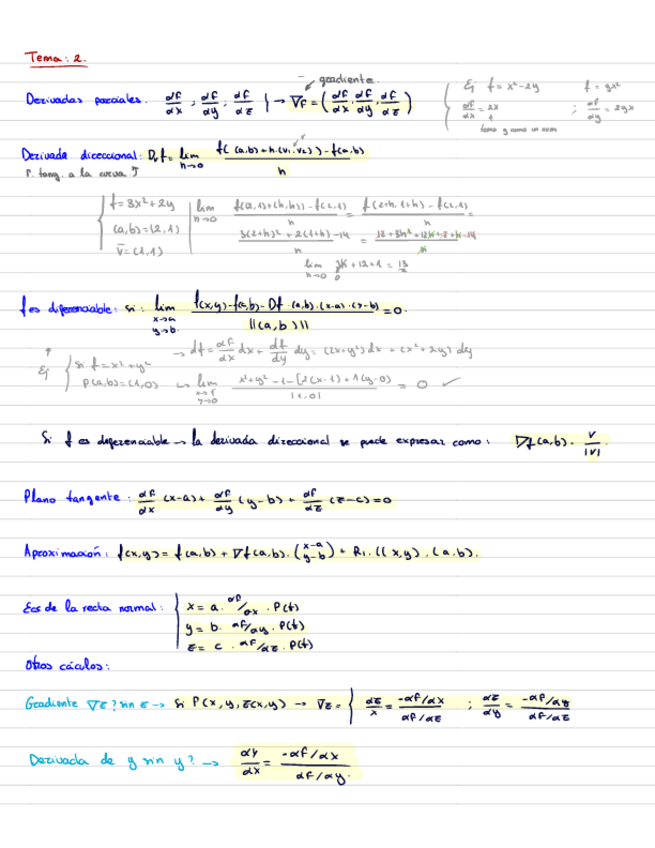 Tema: 2.
gradiente.
Derivadas parciales. df/dx ; df/dy ; df/dz } → ∇F = (df/dx, df/dy, df/dz)
Ej f = x²-2y
df/dx = 2x
f = yx²
; df/dy = 2yx
tomo y como un num
Derivada direccional: Dvf = lim h→0 f((a,b)+h.(v1,v2)) - f(a,b) / h
P. tang. a la curva
f = 3x²+2y
(a,b) = (2,1)
v̄ = (1,1)
lim h→0 f((2,1)+(h,h)) - f(2,1) / h = f(2+h, 1+h) - f(2,1) / h =
3(2+h)² + 2(1+h) - 14 / h = 12 + 3h² + 12h + 2 + h - 14 / h
lim h→0 3h + 12 + 1 = 13
f es diferenciable: si: lim x→a y→b f(x,y) - f(a,b) - Df (a,b).(x-a).(y-b) / ||(a,b)|| = 0.
Ej { si f = x² + y²
P(a,b) = (1,0)
→ df = df/dx dx + df/dy dy = (2x+y²)dx + (x²+2y) dy
↳ lim x→1 y→0 x²+y² - 1 - [2(x-1) + 1(y-0) / |1,0| = 0 ✓
Si f es diferenciable → la derivada direccional se puede expresar como: ∇f(a,b) . v/|v|
Plano tangente: df/dx (x-a) + df/dy (y-b) + df/dz (z-c) = 0
Aproximación: f(x,y) = f(a,b) + ∇f(a,b). (x-a y-b) + R1.((x,y).(a,b).
Ecs de la recta normal: { x = a. df/dx . P(t)
y = b. df/dy . P(t)
z = c . df/dz . P(t)
Otros cáculos:
Gradiente ∇z? sin z → Si P(x,y,z(x,y) → ∇z = { dz/x = -df/dx / df/dz ; dz/dy = -df/dy / df/dz
Derivada de y sin y? → dy/dx = -df/dx / df/dy.